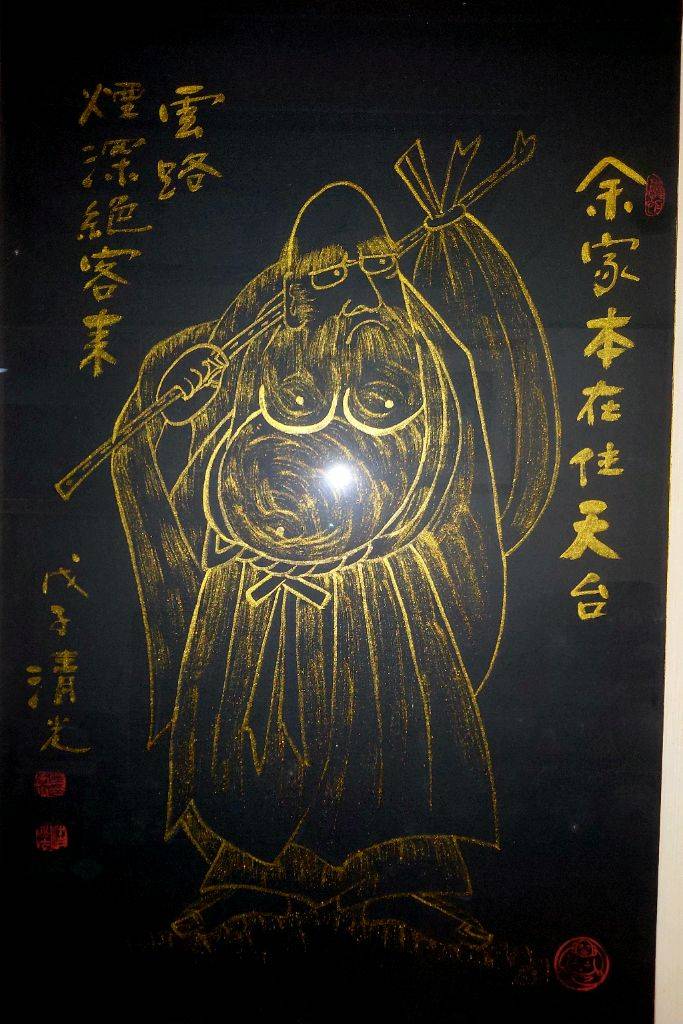 余家本在住天台
雲路
煙深絕客来
戊子清光